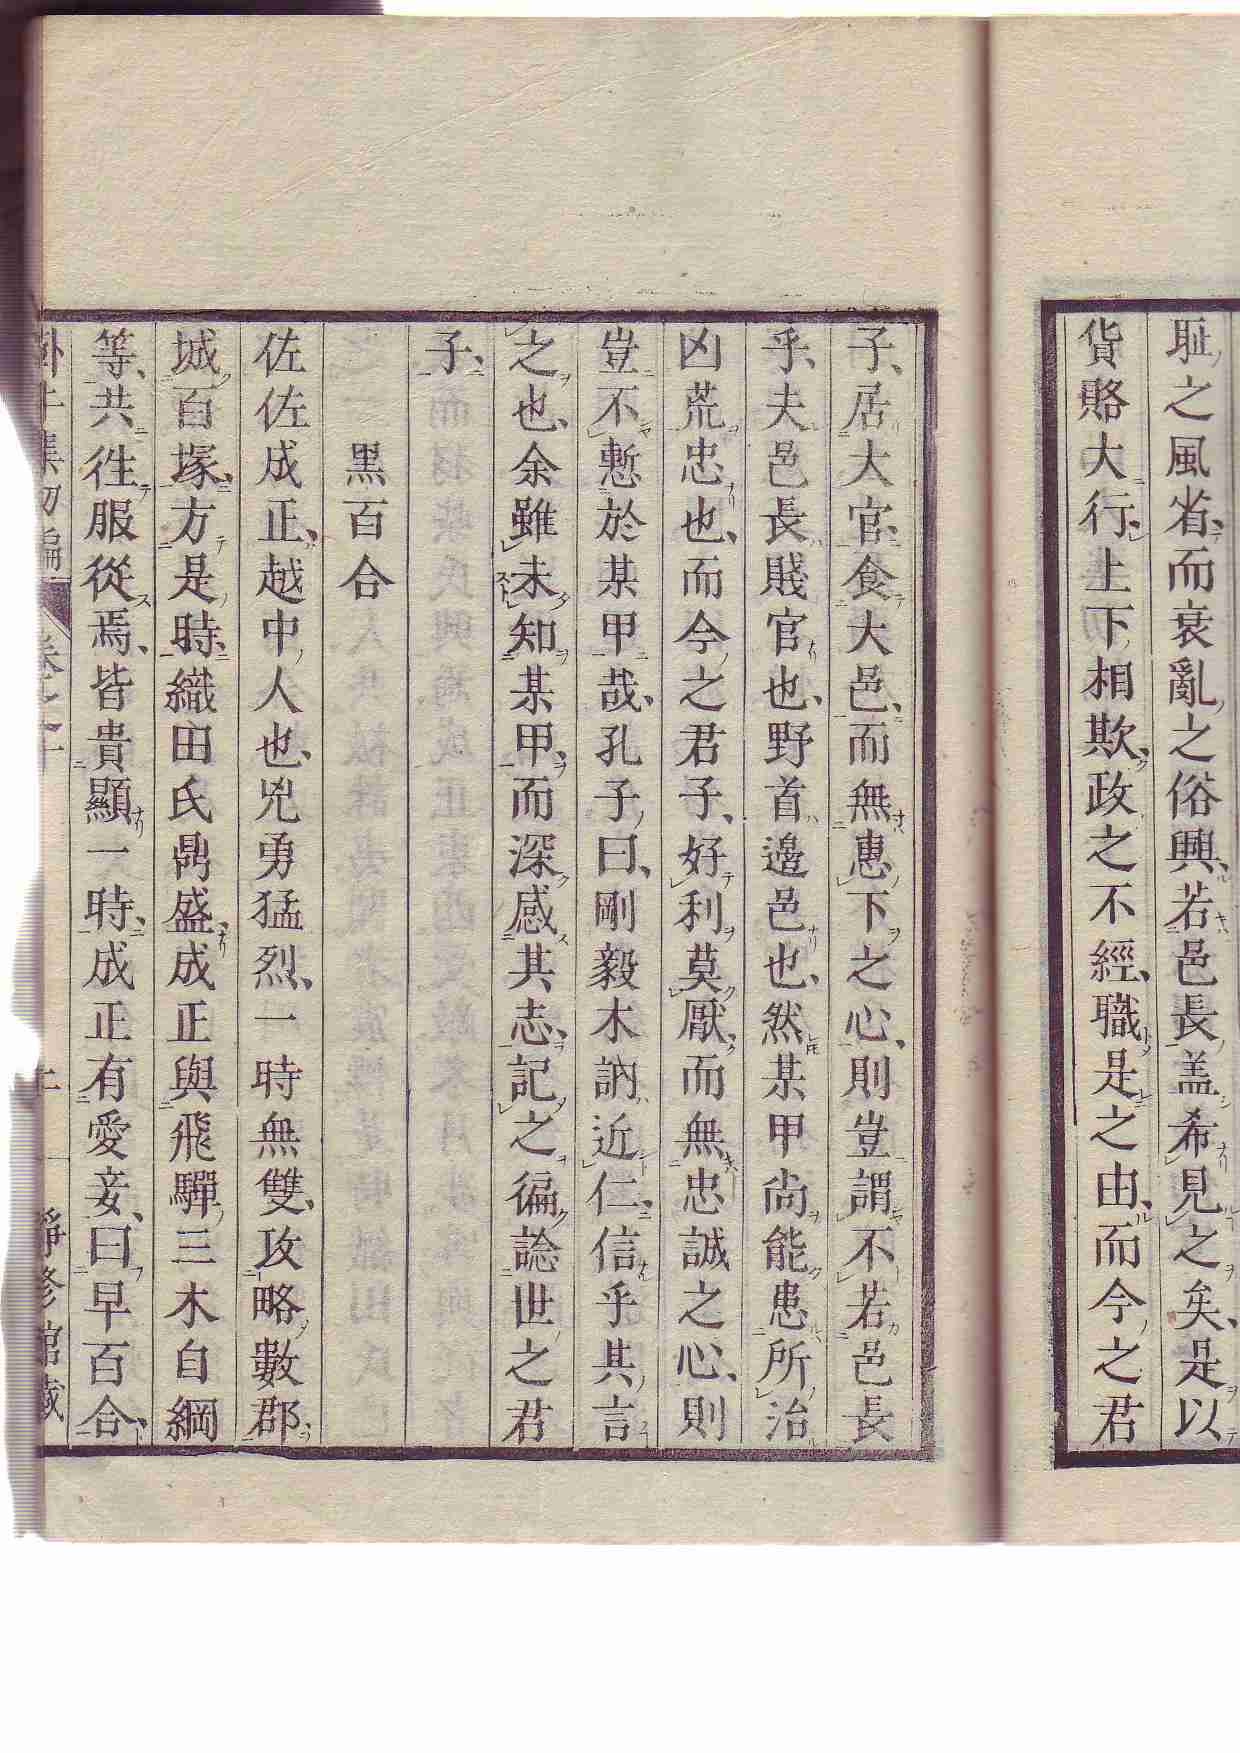 耻之風省、而衰亂之俗興、若邑長盖希見之矣、是以
貨賂大行、上下相欺、政之不經、職是之由、而今之君
子、居大官、食大邑、而無惠下之心、則豈謂不若邑長
乎、夫邑長賤官也、野首邊邑也、然某甲尚能患所治
凶荒忠也、而今之君子、好利莫厭、而無忠誠之心、則
豈不慙於某甲哉、孔子曰、剛毅木訥近仁、信乎其言
之也、余雖未知某甲、而深感其志、記之徧諗世之君
子、
黑百合
佐佐成正、越中人也、兇勇猛烈、一時無雙、攻略數郡、
城百塚、方是時、織田氏鼎盛、成正與飛驒三木自綱
等、共往服從焉、皆貴顯一時、成正有愛妾、曰早百合、
集初編 卷之十 靜修館藏